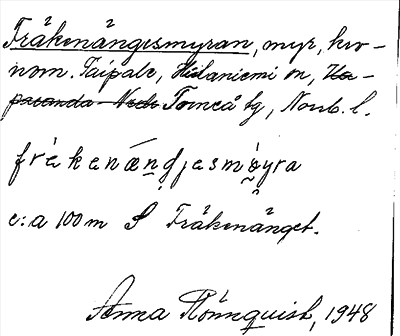 Fräkenängesmyran, myr, kro-
nom. Taipale, Hietaniemi sn, Ha-
paranda Torneå tg, Norrb. l.
fräkenæŋdjesmøyra
c:a 100 m S Fräkenänget.
Anna Rönnquist, 1948